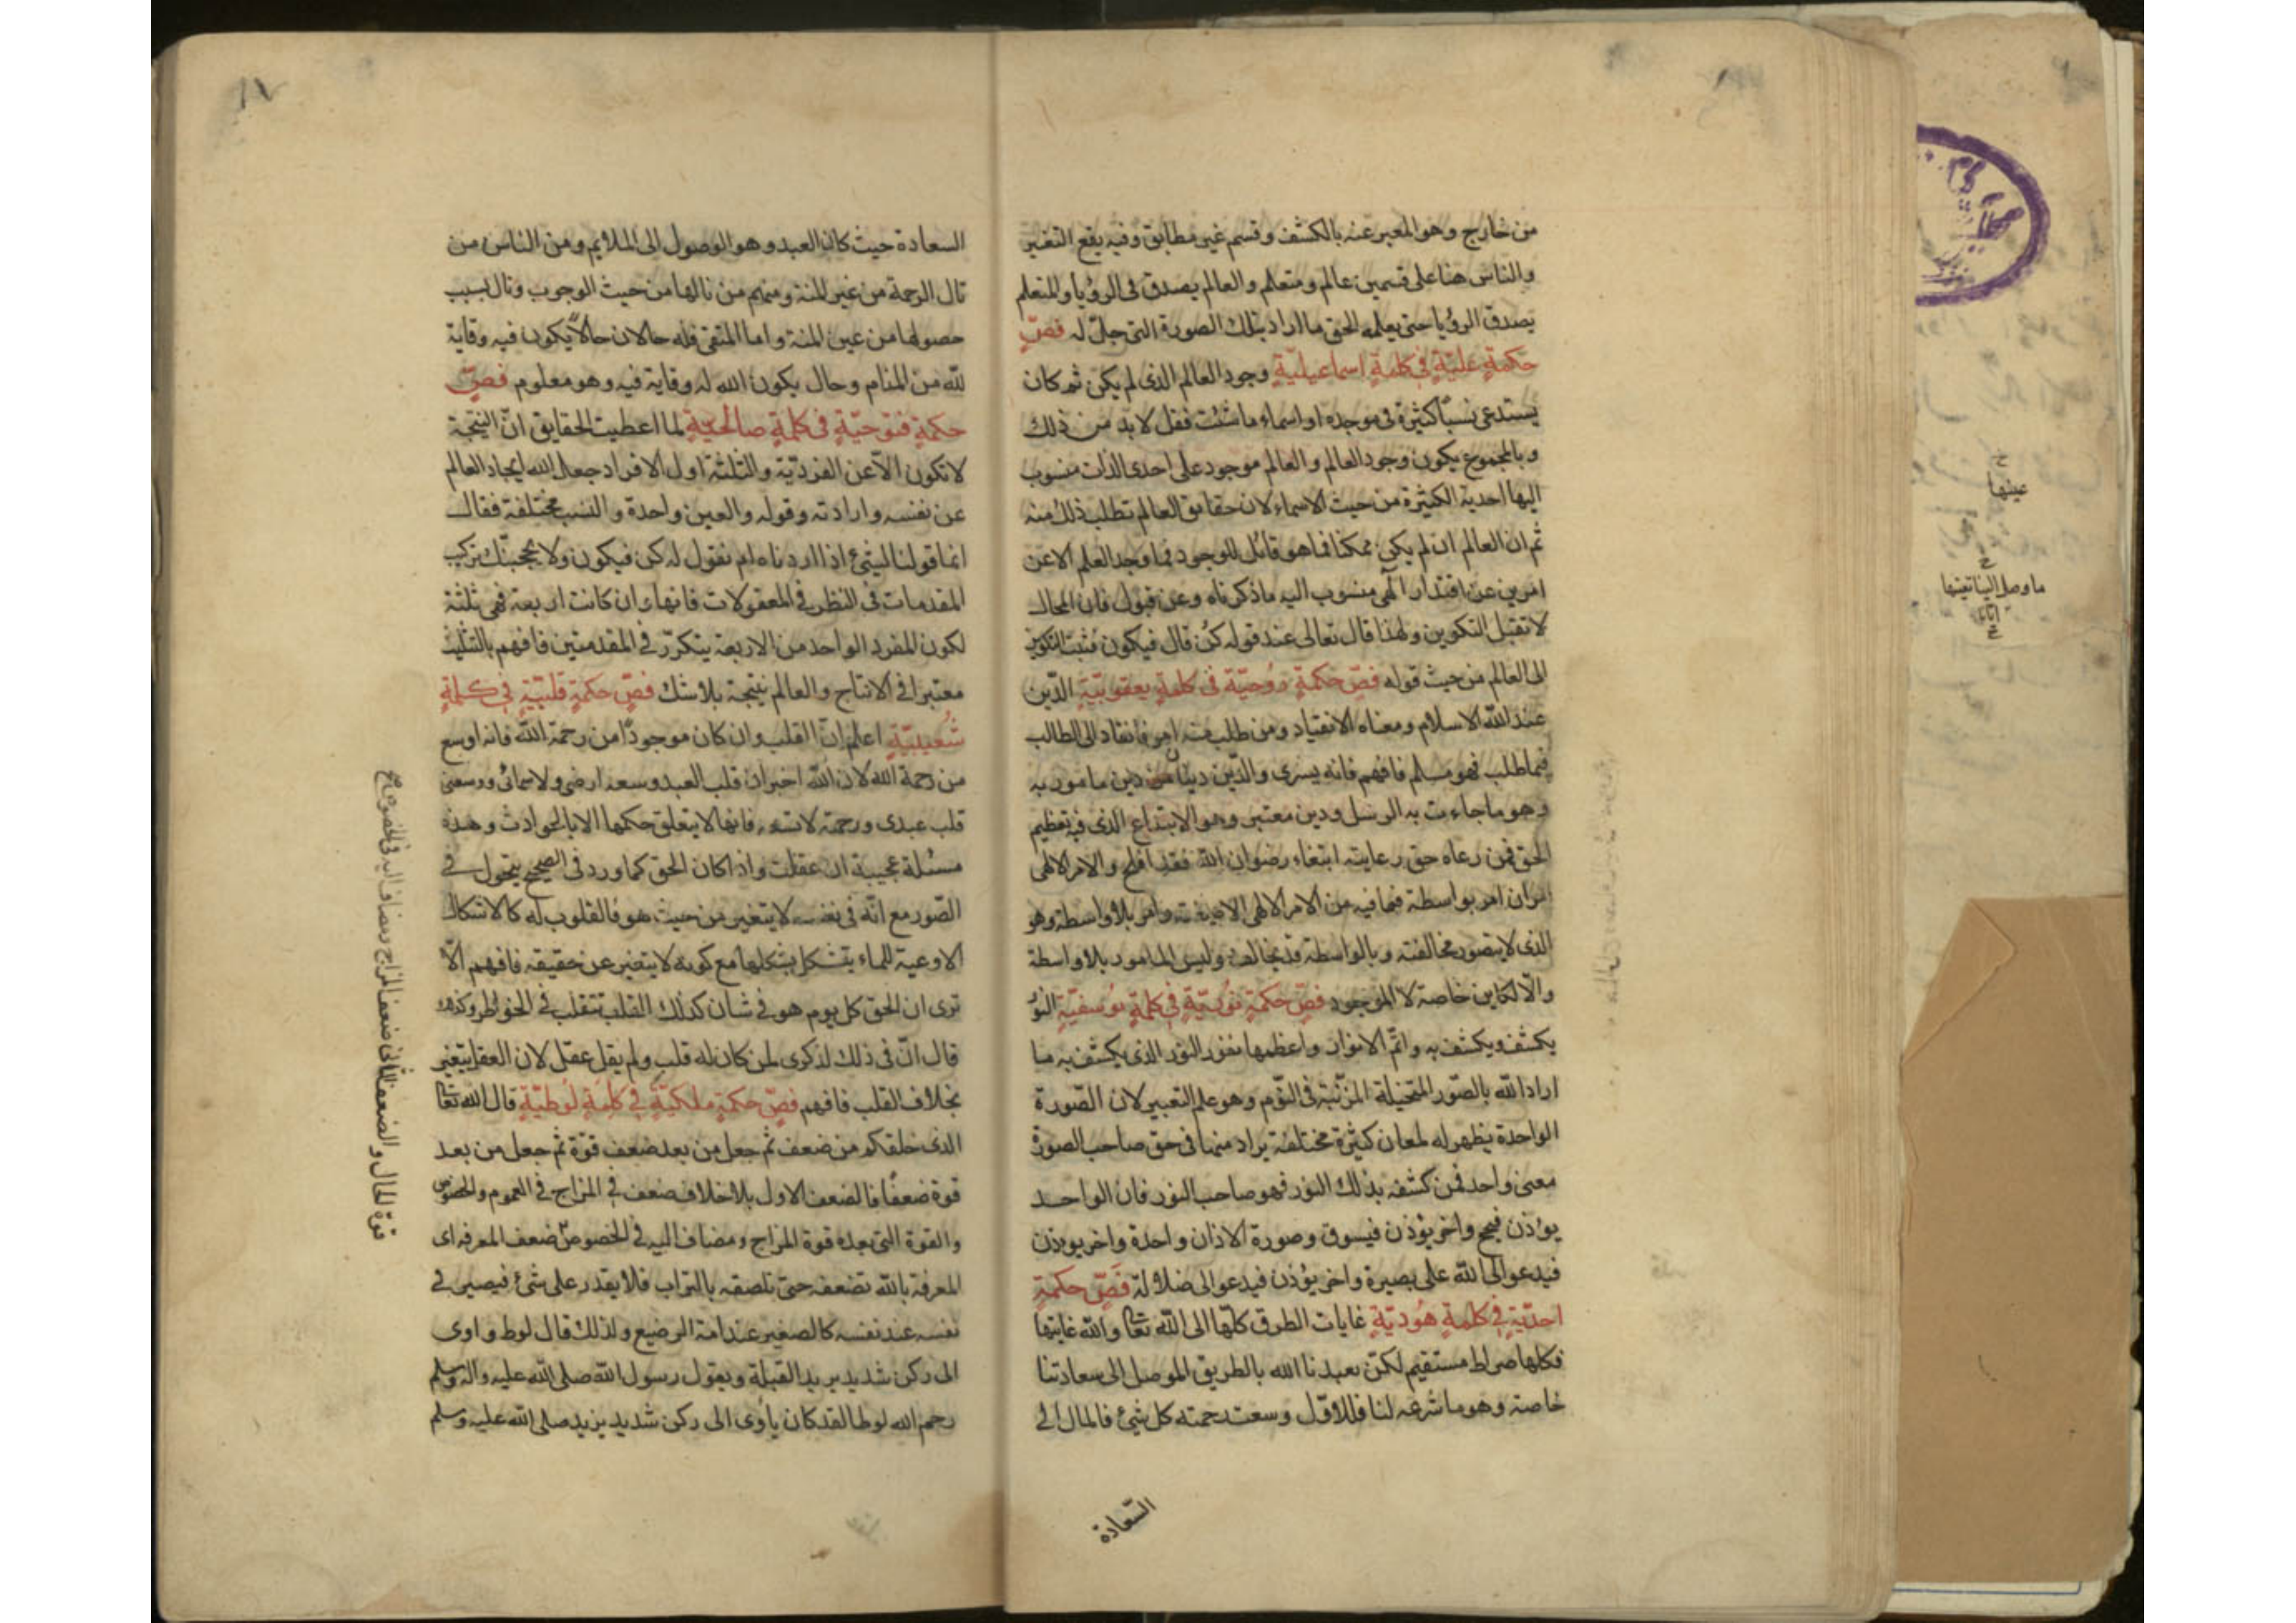 من خارج وهو المعبر عنه بالكشف وقسم غير مطابق وفيه يقع التعبير
والناس هنا على قسمين عالم ومتعلم والعالم يصدق فى الرؤيا والمتعلم
يصدق الرؤيا حتى يعلمه الحق ما اراد بتلك الصورة التى جلّ له فصّ
حكمةٍ عليّةٍ فى كلمةٍ اسماعيليّةٍ وجود العالم الذى لم يكن ثم كان
يستدعى نسبًا كثيرة فى موجده او اسماء ما شئت فقل لا بد من ذلك
وبالمجموع يكون وجود العالم والعالم موجود على احدى الذات منسوب
اليها احدية الكثيرة من حيث الاسماء لان حقايق العالم تطلب ذلك منه
ثم ان العالم ان لم يكن ممكنا فما هو قابل للوجود فما وجد العلم الا عن
امرين عن اقتدار الٓهى منسوب اليه ما ذكرناه وعن قبول فان المحال
لا تقبل التكوين ولهذا قال تعالى عند قوله كن قال فيكون فثبت التكوين
الى العالم من حيث قوله فصّ حكمةٍ رُوحيّة فى كلمةٍ يعقوبيّةٍ الدّين
عند اللّه الاسلام ومعناه الانقياد ومن طلب منه امر فانقاد الى الطالب
فيما طلب فهو مسلم فافهم فانه يسرى والدّين دينان دين مامور به
وهو ما جاءت به الرسل ودين معتبر وهو الابتداع الذى فيه تعظيم
الحق فمن رعاه حق رعايته ابتغاء رضوان اللّه فقد افلح والامر الالهى
امران امر بواسطة فما فيه من الامر الالهى الا صيغته وامر بلا واسطة وهو
الذى لا يتصور مخالفته وبالواسطة قد يخالف وليس المامور بلا واسطة
والّا لكاين خاصة لا الموجود فصّ حكمةٍ نوُريّةٍ فى كلمةٍ يوُسفيّةٍ النوُر
يكشف ويكشف به واتمّ الانوار واعظمها نفوز النور الذى يكشف به ما
اراد اللّه بالصّور المتخيلة المرئية فى النّوم وهو علم التعبير لان الصّورة
الواحدة يظهر له لمعان كثيرة مختلفة يراد منها فى حق صاحب الصورة
معنى واحد فمن كشفه بذلك النور فهو صاحب النور فان الواحد
يوذن فيحج واخر يؤذن فيسوق وصورة الاذان واحدة واخر يوذن
فيدعو الى اللّه على بصيرة واخر يؤذن فيدعو الى ضلالة فَصّ حكمةٍ
احديّةٍ فى كلمةٍ هُوديّةٍ غايات الطرق كلّها الى اللّه تعا واللّه غايتها
فكلها صراط مستقيم لكن تعبدنا اللّه بالطريق الموصل الى سعادتنا
خاصة وهو ما شرعه لنا فللاوّل وسعت رحمته كل شئ فالمال الى
السّعادة
السعادة حيث كان العبد وهو الوصول الى الملايم ومن الناس من
نال الرحمة من عين المنة ومنهم من نالها من حيث الوجوب ونال سبب
حصولها من عين المنة واما المتقى فله حالان حالاً يكون فيه وقاية
للّه من المنام وحال يكون اللّه له وقاية فيه وهو معلوم فصّ
حكمةٍ فتوحيّةٍ فى كلمةٍ صالحيّةٍ لما اعطيت الحقايق انّ النتيجة
لا تكون الّا عن الفرديّة والثلثة اول الافراد جعل اللّه ايجاد العالم
عن نفسه وارادته وقوله والعين واحدة والنسب مختلفة فقال
انما قولنا لشئ اذا اردناه ان نقول له كن فيكون ولا يحجبنّك تركيب
المقدمات فى النظر فى المعقولات فانها وان كانت اربعة فهى ثلثة
لكون المفرد الواحد من الاربعة يتكرّر فى المقدمتين فافهم بالتثليث
معتبر فى الانتاج والعالم نتيجة بلا شك فصّ حكمةٍ قلبيّةٍ فى كلمةٍ
شُعيبيّةٍ اعلم انّ القلب وان كان موجودًا من رحمة اللّه فانه اوسع
من رحمة اللّه لان اللّه اخبر ان قلب العبد وسعه ارضى ولا سمائى ووسعنى
قلب عبدى ورحمته لا تسعه فانها لا يتعلق حكمها الا بالحوادث وهذه
مسئلة عجيبة ان عقلت واذا كان الحق كما ورد فى الصحيح يتحول فى
الصّور مع انّه فى نفسه لا يتغير من حيث هو فالقلوب له كالاشكال
الاوعية للماء يتشكل بشكلها مع كونه لا يتغير عن حقيقه فافهم الّا
ترى ان الحق كل يوم هو فى شان كذلك القلب تتقلب فى الخواطر وكذلك
قال انّ فى ذلك لذكرى لمن كان له قلب ولم يقل عقل لان العقل يتغير
بخلاف القلب فافهم فصّ حكمةٍ ملكيّةٍ فى كلمةٍ لوُطيّةٍ قال اللّه تعا
الذى خلقكم من ضعف ثم جعل من بعد ضعف قوّة ثم جعل من بعد
قوة ضعفًا فالضعف الاول بلا خلاف ضعف فى المزاج فى العموم والخصوص
والقوة التى بعده قوة المزاج ومضاف اليه فى الخصوص ضعف المعرفه اى
المعرفة باللّه تضعفه حتى تلصقه بالتراب فلا يقدر على شئ فيصير فى
نفسه عند نفسه كالصغير عند امه الرضيع ولذلك قال لوط و اوى
الى ركن شديد يريد القبيلة ويقول رسول اللّه صلى اللّه عليه واله وسلم
رحم اللّه لوطا لقد كان ياوى الى ركن شديد يريد صلى اللّه عليه وسلم
قوة الحال والضعف الثانى ضعف المزاج ويضاف اليه فى الخصوص
عينها
ما وصل الينا تعينها
١٧